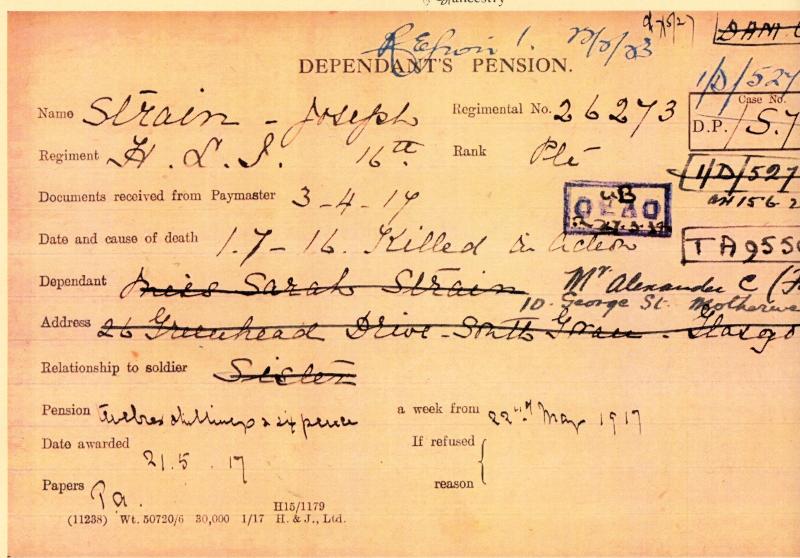 ancestry
22/2/23
DEPENDANT'S PENSION.
1/D/527
Name Strain - Joseph Regimental No. 26273
Case No.
D.P. / S.7
Regiment H. L. I. 16th Rank Pte
1/D/527
Documents received from Paymaster 3-4-17
DEAD
Date and cause of death 1.7-16. Killed in action
TA9550
Dependant Miss Sarah Strain Mr. Alexander C (F
10. George St. Motherwe
Address 26 Greenhead Drive - South Govan - Glasgo
Relationship to soldier Sister
Pension twelve shillings & sixpence a week from 22nd May 1917
Date awarded 21.5.17 If refused
reason
Papers Pa.
H15/1179
(11238) Wt. 50720/6 30,000 1/17 H. & J., Ltd.